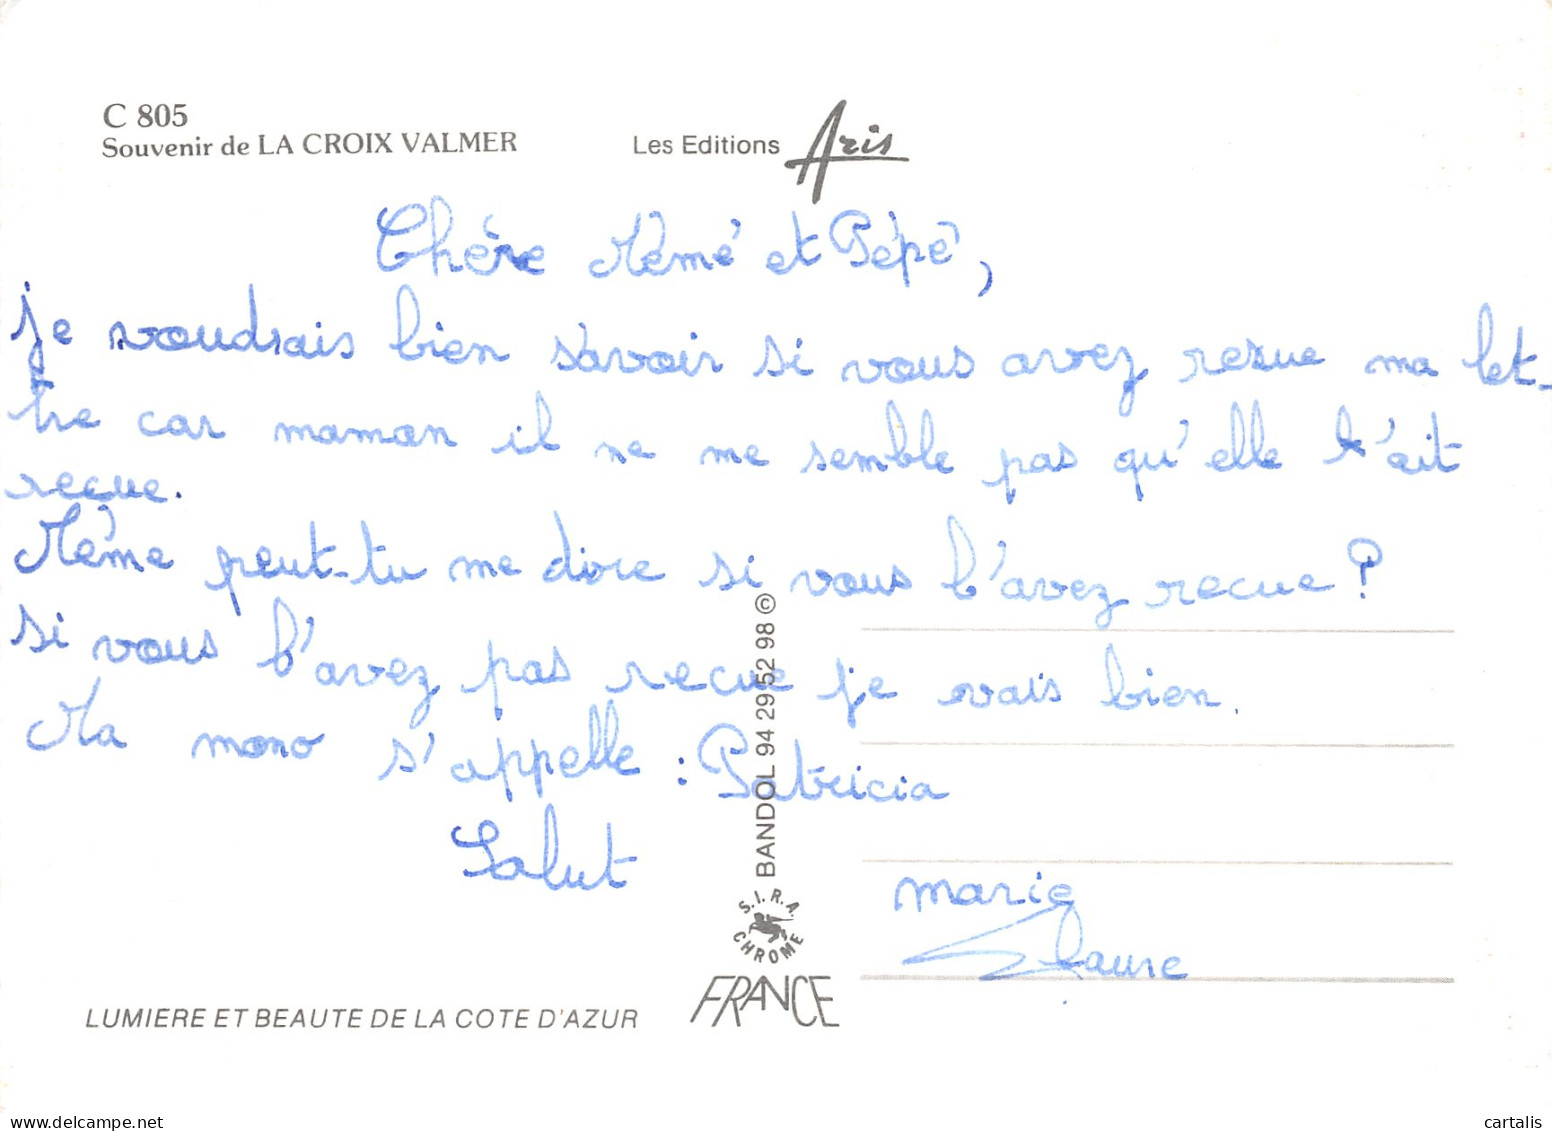 C 805
Souvenir de LA CROIX VALMER
Les Editions Aris
Chère Mémé et Pépé,
je voudrais bien s'avoir si vous avez recue ma let-
tre car maman il ne me semble pas qu'elle l'ait
recue.
Mémé peut-tu me dire si vous l'avez recue ?
si vous l'avez pas recue je vais bien.
Ma mono s'appelle : Patricia
Salut
marie
laure
BANDOL 94 29 52 98 ©
S.I.R.A.
CHROME
FRANCE
LUMIERE ET BEAUTE DE LA COTE D'AZUR
cartalis